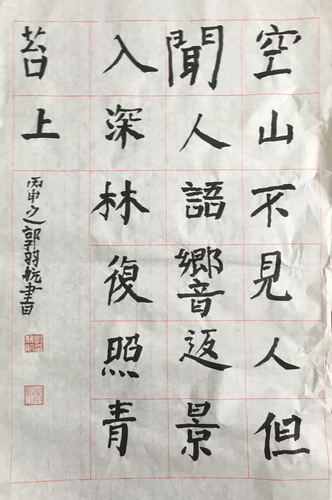 空山不見人但
聞人語響返景
入深林復照青
苔上
丙申之郭羽航書